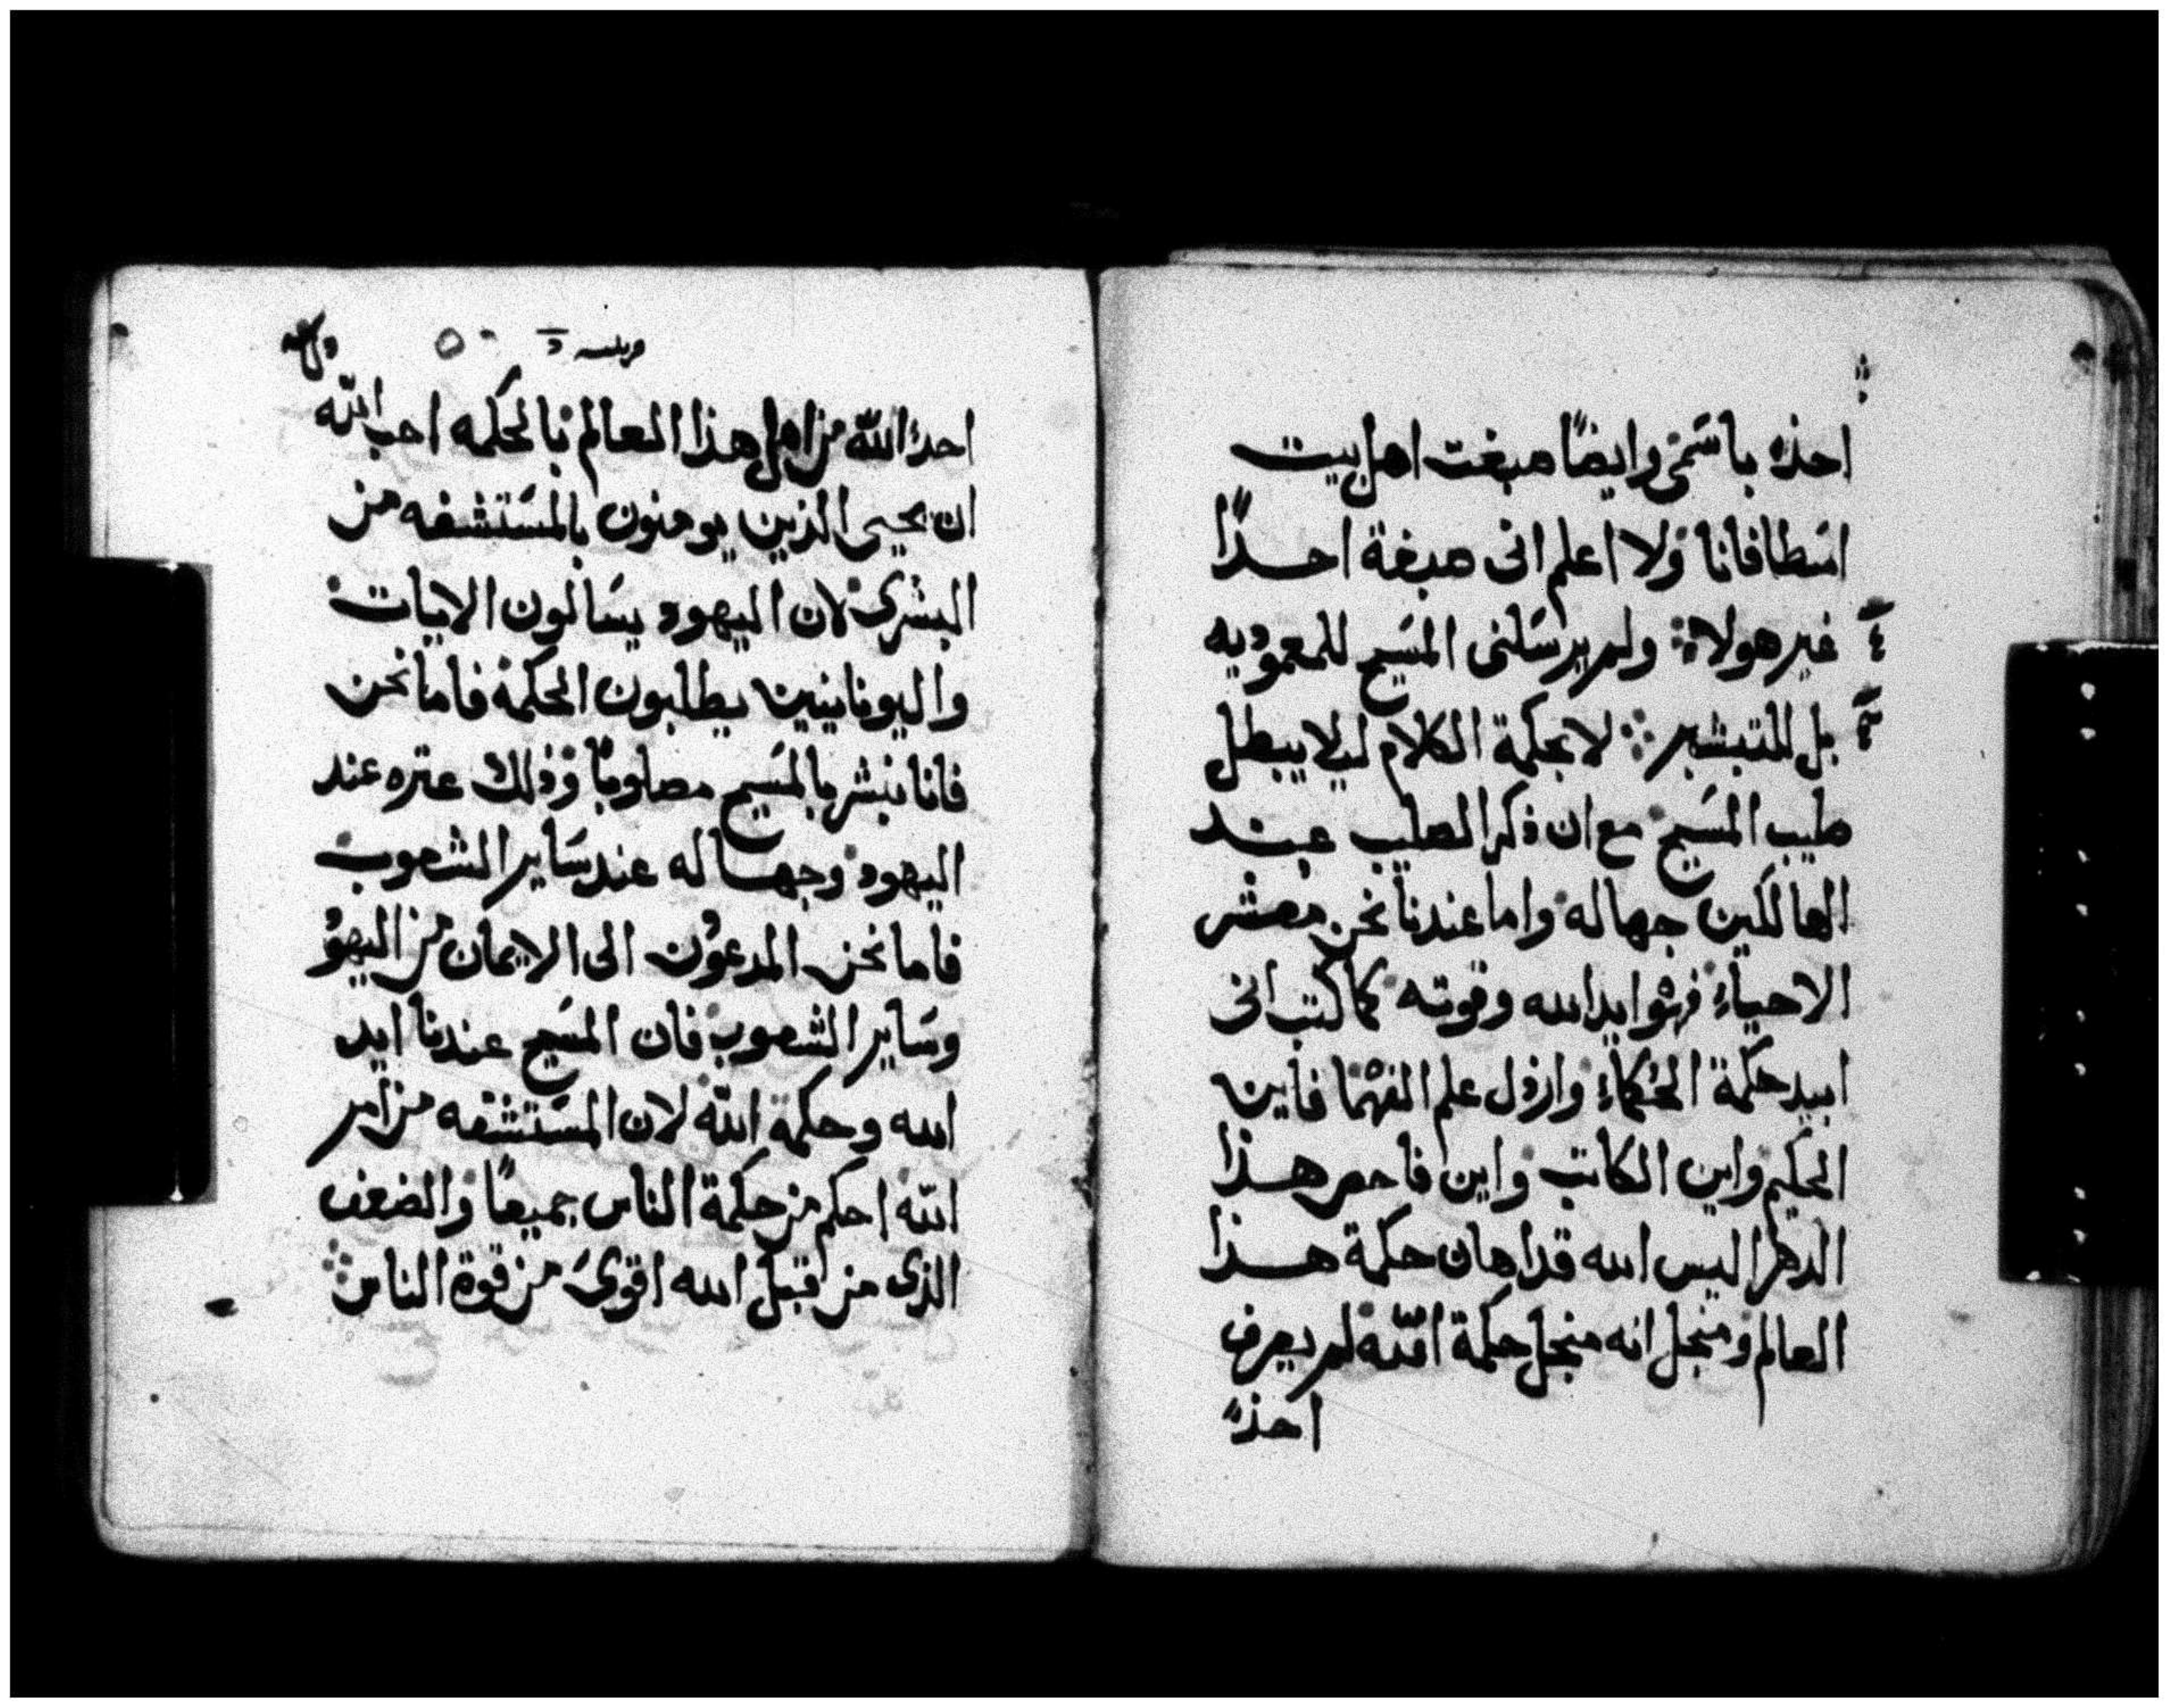 احدٌ باسمى وايضًا صبغت اهل بيت
اسطافانا ولا اعلم انى صبغة احدًا
غير هولاء ولم يرسلنى المسيح للمعموديه
بل للتبشير لا بحكمة الكلام ليلا يبطل
صليب المسيح مع ان ذكر الصليب عند
الهالكين جهاله واما عندنا نحن معشر
الاحياء فهو ايد الله وقوته كما كتب انى
ابيد حكمة الحكماء وارذل علم الفهما فاين
الحكيم واين الكاتب واين فاحص هذا
الدهر اليس الله قد اهان حكمة هذا
العالم ومنجل انه منجل حكمة الله لم يعرف
احدٌ
احدٌ الله من اهل هذا العالم بالحكمه احب الله
ان يحيى الذين يومنون بالمستشفه من
البشرى لان اليهود يسالون الايات
واليونانيين يطلبون الحكمة فاما نحن
فانا نبشر بالمسيح مصلوبًا وذلك عتره عند
اليهود وجهاله عند ساير الشعوب
فاما نحن المدعوون الى الايمان من اليهو
وساير الشعوب فان المسيح عندنا ايد
الله وحكمة الله لان المستشفه من امر
الله احكم من حكمة الناس جميعًا والضعف
الذى من قبل الله اقوى من قوة الناس